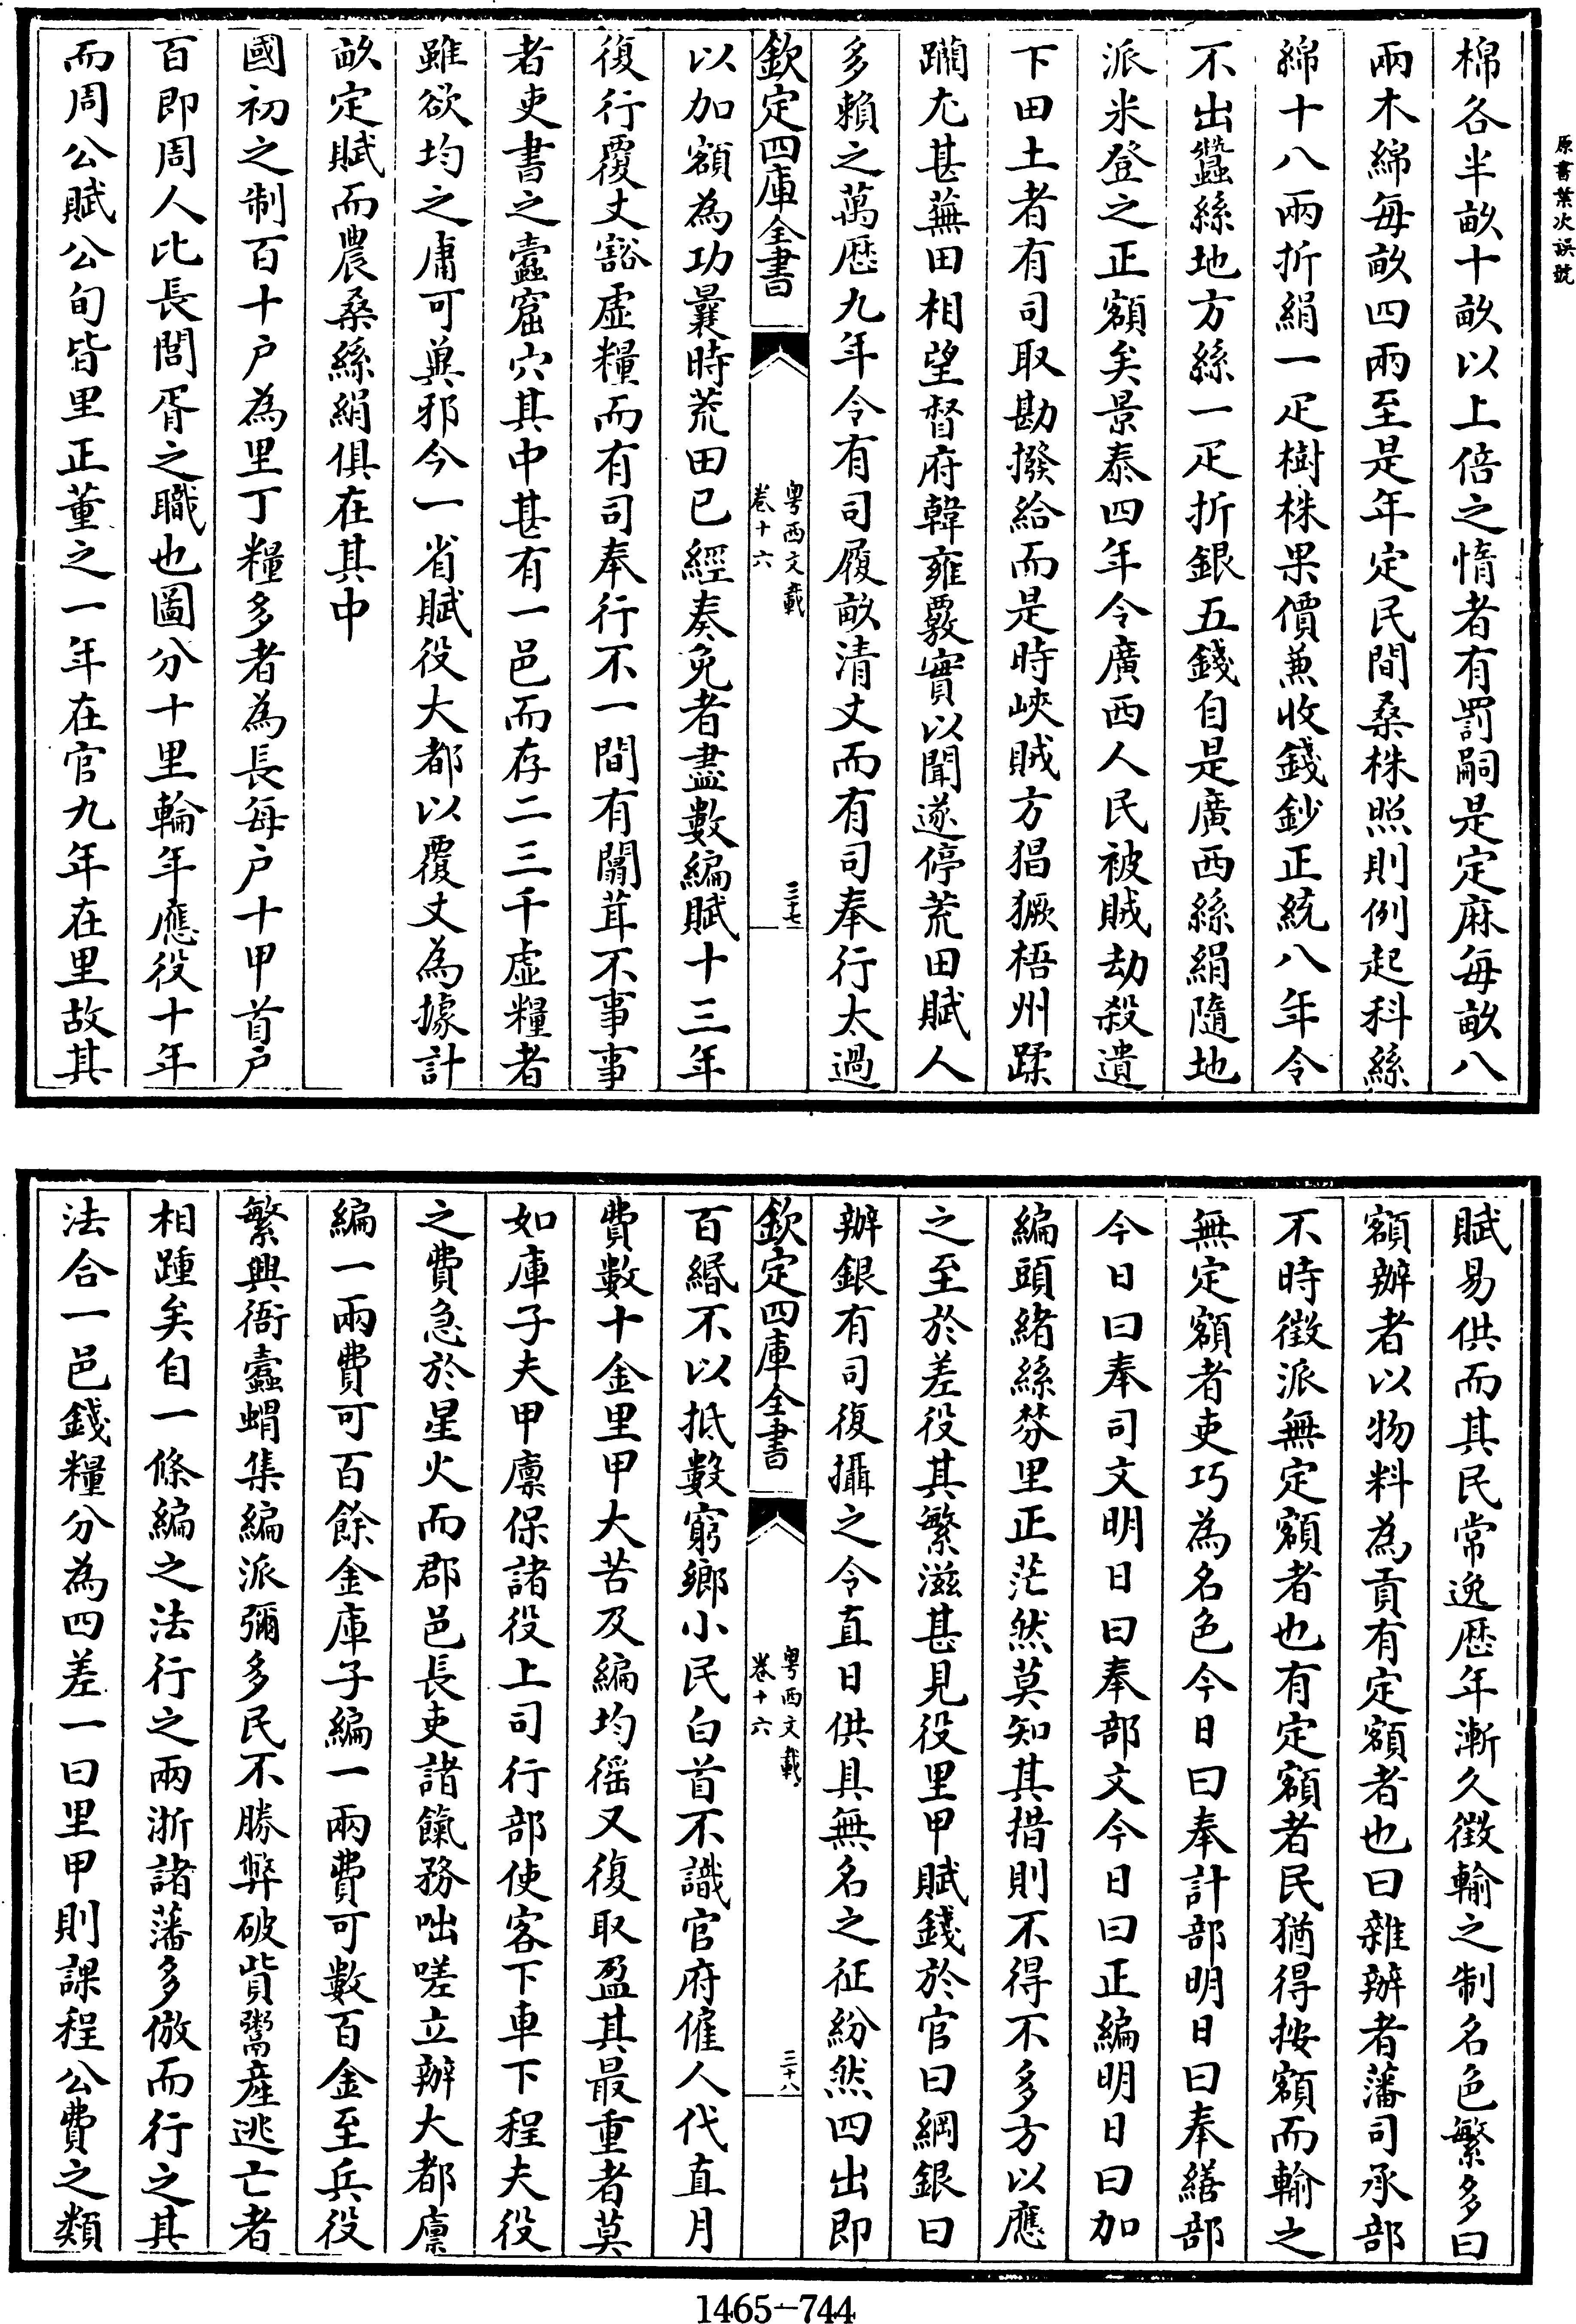 原書葉次誤號
棉各半畝十畝以上倍之惰者有罰嗣是定麻每畝八
兩木綿每畝四兩至是年定民間桑株照則例起科絲
綿十八兩折絹一疋樹株果價兼收錢鈔正統八年令
不出蠶絲地方絲一疋折銀五錢自是廣西絲絹隨地
派米登之正額矣景泰四年令廣西人民被賊劫殺遺
下田土者有司取勘撥給而是時峽賊方猖獗梧州蹂
躪尤甚蕪田相望督府韓雍覈實以聞遂停荒田賦人
多賴之萬歷九年令有司履畝清丈而有司奉行太過
欽定四庫全書
粵西文載
卷十六
三十七
以加額為功曩時荒田已經奏免者盡數編賦十三年
復行覆丈豁虛糧而有司奉行不一間有闒茸不事事
者吏書之蠧窟穴其中甚有一邑而存二三千虛糧者
雖欲均之庸可兾邪今一省賦役大都以覆丈為據計
畝定賦而農桑絲絹俱在其中
國初之制百十户為里丁糧多者為長每户十甲首户
百即周人比長閭胥之職也圖分十里輪年應役十年
而周公賦公旬皆里正董之一年在官九年在里故其
賦易供而其民常逸歷年漸久徵輸之制名色繁多曰
額辦者以物料為貢有定額者也曰雜辦者藩司承部
不時徵派無定額者也有定額者民猶得按額而輸之
無定額者吏巧為名色今日曰奉計部明日曰奉繕部
今日曰奉司文明日曰奉部文今日曰正編明日曰加
編頭緒絲棼里正茫然莫知其措則不得不多方以應
之至於差役其繁滋甚見役里甲賦錢於官曰綱銀曰
辦銀有司復攝之令直日供具無名之征紛然四出即
欽定四庫全書
粵西文載
卷十六
三十八
百緡不以抵數窮鄉小民白首不識官府僱人代直月
費數十金里甲大苦及編均徭又復取盈其最重者莫
如庫子夫甲廩保諸役上司行部使客下車下程夫役
之費急於星火而郡邑長吏諸餼務咄嗟立辦大都廩
編一兩費可百餘金庫子編一兩費可數百金至兵役
繁興衙蠧蝟集編派彌多民不勝弊破貲鬻產逃亡者
相踵矣自一條編之法行之兩浙諸藩多倣而行之其
法合一邑錢糧分為四差一曰里甲則課程公費之類
1465—744